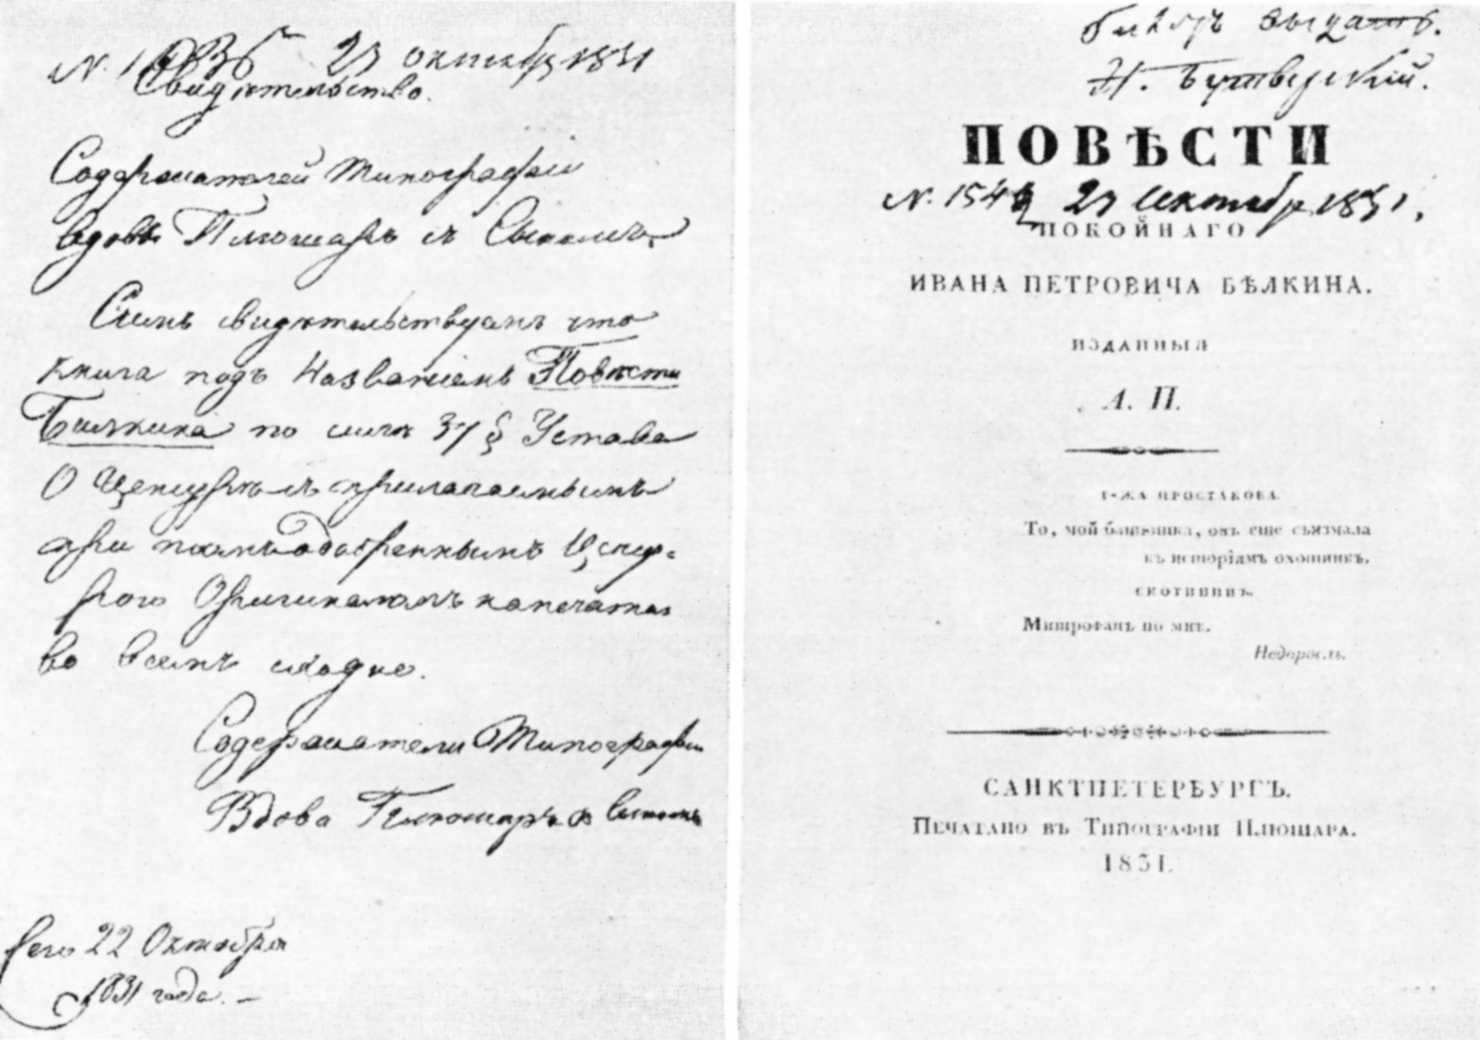 23 октября 1831
Свидѣтельство.
Содержателей Типографіи
вдовы Плюшаръ съ Сыномъ
Симъ свидѣтельствуемъ что
книга подъ Названіемъ Повѣсти
Бѣлкина по силѣ 37 § Устава
О Ценсурѣ съ прилагаемымъ
при немъ одобреннымъ Ценсу-
рою Оригиналомъ напечатана
во всемъ сходно.
Содержатели Типографіи
Вдова Плюшаръ съ сыномъ
Сего 22 Октября
1831 года. —
билетъ выдать.
Н. Бутырскій.
ПОВѢСТИ
23 октября 1831.
ПОКОЙНАГО
ИВАНА ПЕТРОВИЧА БѢЛКИНА.
ИЗДАННЫЯ
А. П.
Г-ЖА ПРОСТАКОВА.
То, мой батюшка, онъ еще съизмала
къ исторіямъ охотникъ.
СКОТИНИНЪ.
Митрофанъ по мнѣ.
Недоросль.
САНКТПЕТЕРБУРГЪ.
Печатано въ Типографіи Плюшара.
1831.